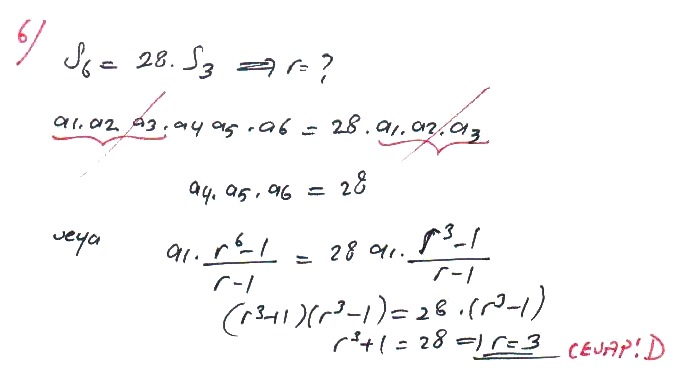 6)
S₆ = 28. S₃ ⟹ r = ?
a₁. a₂ a₃. a₄ a₅ . a₆ = 28 . a₁. a₂. a₃
a₄. a₅ . a₆ = 28
veya a₁. (r⁶-1)/(r-1) = 28 a₁. (r³-1)/(r-1)
(r³+1)(r³-1) = 28 . (r³-1)
r³+1 = 28 ⟹ r = 3 CEVAP: D